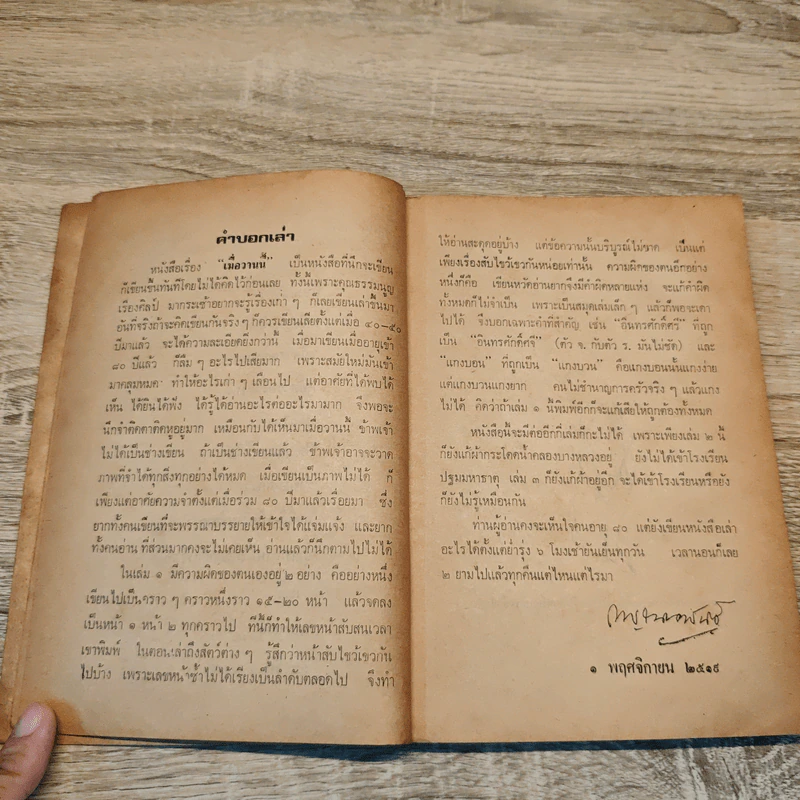 คำบอกเล่า
หนังสือเรื่อง "เมื่อวานนี้" เป็นหนังสือที่นึกจะเขียน
ก็เขียนขึ้นทันทีโดยไม่ได้คิดไว้ก่อนเลย ทั้งนี้เพราะคุณธรรมนูญ
เรืองศิลป์ มากระเซ้าอยากจะรู้เรื่องเก่า ๆ ก็เลยเขียนเล่าขึ้นมา
อันที่จริงถ้าจะคิดเขียนกันจริง ๆ ก็ควรเขียนเสียตั้งแต่เมื่อ ๔๐-๕๐
ปีมาแล้ว จะได้ความละเอียดยิ่งกว่านี้ เมื่อมาเขียนเมื่ออายุเข้า
๘๐ ปีแล้ว ก็ลืม ๆ อะไรไปเสียมาก เพราะสมัยใหม่มันเข้า
มาคลุมหมด ทำให้อะไรเก่า ๆ เลือนไป แต่อาศัยที่ได้พบได้
เห็น ได้ยินได้ฟัง ได้รู้ได้อ่านอะไรต่ออะไรมามาก จึงพอจะ
นึกจำติดตาติดหูอยู่มาก เหมือนกับได้เห็นมาเมื่อวานนี้ ข้าพเจ้า
ไม่ได้เป็นช่างเขียน ถ้าเป็นช่างเขียนแล้ว ข้าพเจ้าอาจจะวาด
ภาพที่จำได้ทุกสิ่งทุกอย่างได้หมด เมื่อเขียนเป็นภาพไม่ได้ ก็
เพียงแต่อาศัยความจำตั้งแต่เมื่อร่วม ๘๐ ปีมาแล้วเรื่อยมา ซึ่ง
ยากทั้งคนเขียนที่จะพรรณาบรรยายให้เข้าใจได้แจ่มแจ้ง และยาก
ทั้งคนอ่าน ที่ส่วนมากคงจะไม่เคยเห็น อ่านแล้วก็นึกตามไปไม่ได้
ในเล่ม ๑ มีความผิดของตนเองอยู่ ๒ อย่าง คืออย่างหนึ่ง
เขียนไปเป็นคราว ๆ คราวหนึ่งราว ๑๕-๒๐ หน้า แล้วจดลง
เป็นหน้า ๑ หน้า ๒ ทุกคราวไป ทีนี้ก็ทำให้เลขหน้าสับสนเวลา
เขาพิมพ์ ในตอนเล่าถึงสัตว์ต่าง ๆ รู้สึกว่าหน้าสับไขว้เขวกัน
ไปบ้าง เพราะเลขหน้าซ้ำไม่ได้เรียงเป็นลำดับตลอดไป จึงทำ
ให้อ่านสะดุดอยู่บ้าง แต่ข้อความนั้นบริบูรณ์ไม่ขาด เป็นแต่
เพียงเรื่องสับไขว้เขวกันหน่อยเท่านั้น ความผิดของตนอีกอย่าง
หนึ่งก็คือ เขียนหวัดอ่านยากจึงมีคำผิดหลายแห่ง จะแก้คำผิด
ทั้งหมดก็ไม่จำเป็น เพราะเป็นสมุดเล่มเล็ก ๆ แล้วก็พอจะเดา
ไปได้ จึงบอกเฉพาะคำที่สำคัญ เช่น "อินทรศักดิ์ศรี" ที่ถูก
เป็น "อินทรศักดิ์ศจี" (ตัว จ. กับตัว ร. มันไม่ชัด) และ
"แกงบอน" ที่ถูกเป็น "แกงบวน" คือแกงบอนนั้นแกงง่าย
แต่แกงบวนแกงยาก คนไม่ชำนาญการครัวจริง ๆ แล้วแกง
ไม่ได้ คิดว่าถ้าเล่ม ๑ นี้พิมพ์อีกก็จะแก้เสียให้ถูกต้องทั้งหมด
หนังสือนี้จะมีต่ออีกกี่เล่มก็กะไม่ได้ เพราะเพียงเล่ม ๒ นี้
ก็ยังแก้ผ้ากระโดดน้ำคลองบางหลวงอยู่ ยังไม่ได้เข้าโรงเรียน
ปฐมมหาธาตุ เล่ม ๓ ก็ยังแก้ผ้าอยู่อีก จะได้เข้าโรงเรียนหรือยัง
ก็ยังไม่รู้เหมือนกัน
ท่านผู้อ่านคงจะเห็นใจคนอายุ ๘๐ แต่ยังเขียนหนังสือเล่า
อะไรได้ตั้งแต่ย่ำรุ่ง ๖ โมงเช้ายันเย็นทุกวัน เวลานอนก็เลย
๒ ยามไปแล้วทุกคืนแต่ไหนแต่ไรมา
๑ พฤศจิกายน ๒๕๑๙